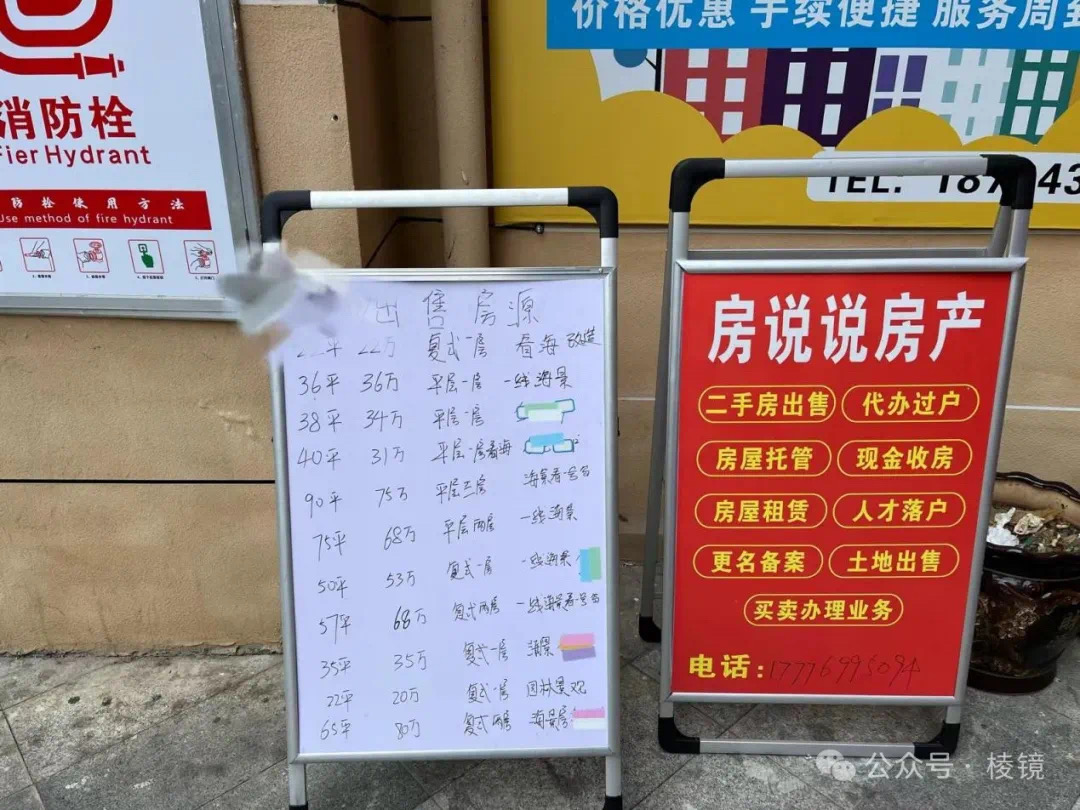 消防栓
Fier Hydrant
防栓使用方法
Use method of fire hydrant
价格优惠 手续便捷 服务周到
TEL: 187 43
出售房源
22平 22万 复式一房 看海 改造
36平 36万 平层一房 一线海景
38平 34万 平层一房
40平 31万 平层一房看海
90平 75万 平层三房 海景看号岛
75平 68万 平层两房 一线海景
50平 53万 复式一房 一线海景
57平 68万 复式两房 一线海景看号岛
35平 35万 复式一房 海景
22平 20万 复式一房 园林景观
65平 80万 复式两房 海景房
房说说房产
二手房出售 代办过户
房屋托管 现金收房
房屋租赁 人才落户
更名备案 土地出售
买卖办理业务
电话:17776995094
公众号·棱镜